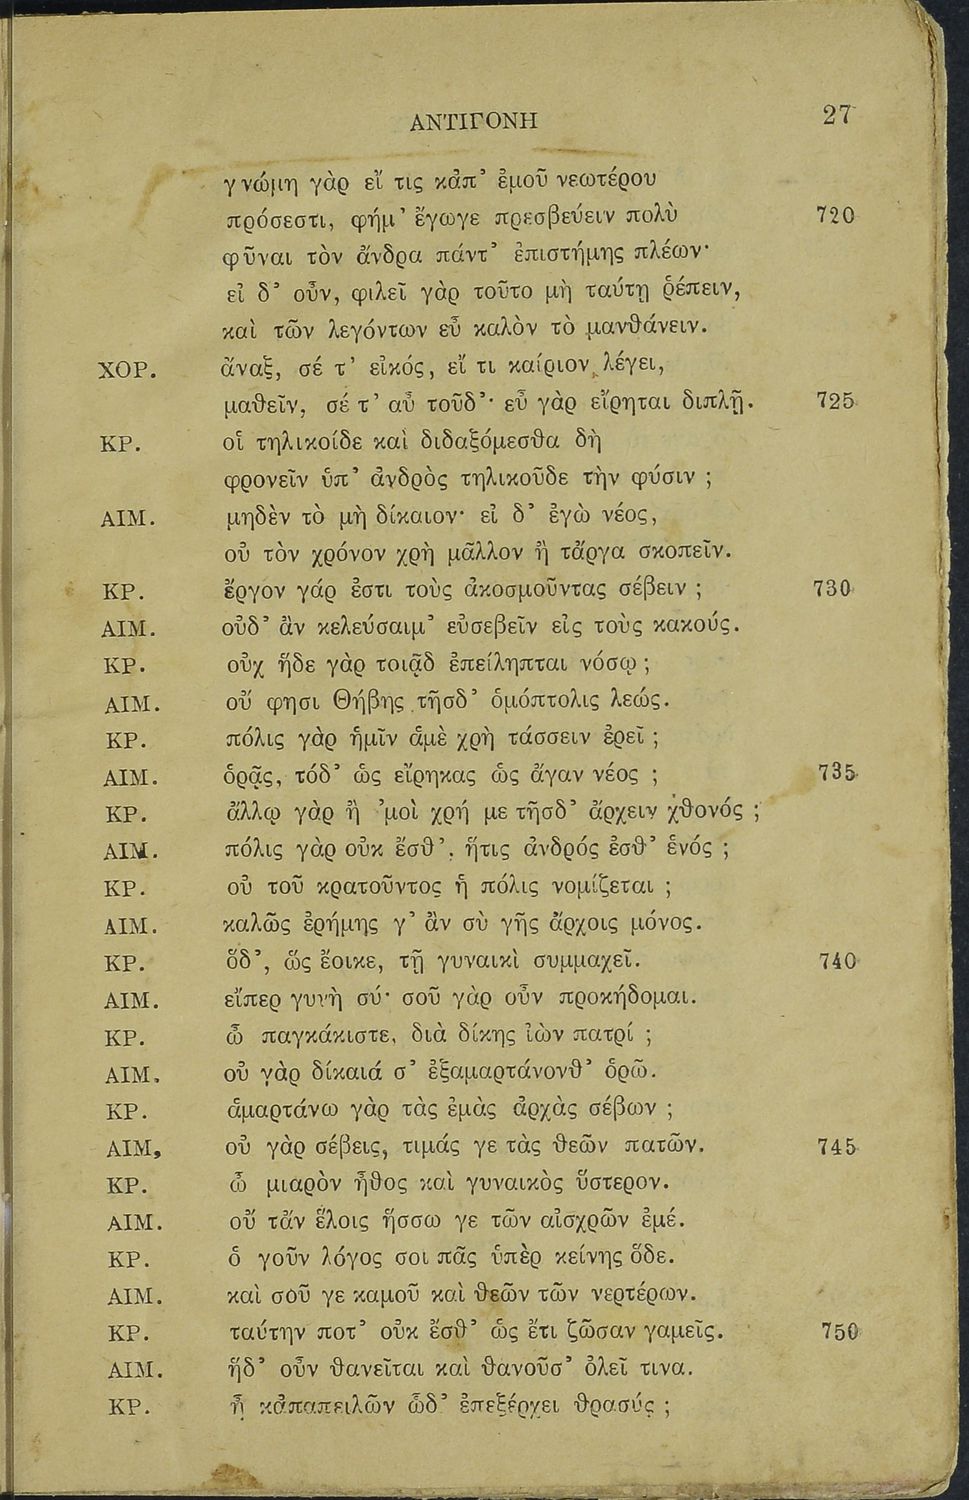 ΑΝΤΙΓΟΝΗ 27
γνώμη γὰρ εἴ τις κἀπ’ ἐμοῦ νεωτέρου
πρόσεστι, φήμ’ ἔγωγε πρεσβεύειν πολὺ 720
φῦναι τὸν ἄνδρα πάντ’ ἐπιστήμης πλέων·
εἰ δ’ οὖν, φιλεῖ γὰρ τοῦτο μὴ ταύτῃ ῥέπειν,
καὶ τῶν λεγόντων εὖ καλὸν τὸ μανθάνειν.
ΧΟΡ. ἄναξ, σέ τ’ εἰκός, εἴ τι καίριον λέγει,
μαθεῖν, σέ τ’ αὖ τοῦδ’· εὖ γὰρ εἴρηται διπλῇ. 725
ΚΡ. οἱ τηλικοίδε καὶ διδαξόμεσθα δὴ
φρονεῖν ὑπ’ ἀνδρὸς τηλικοῦδε τὴν φύσιν ;
ΑΙΜ. μηδὲν τὸ μὴ δίκαιον· εἰ δ’ ἐγὼ νέος,
οὐ τὸν χρόνον χρὴ μᾶλλον ἢ τἄργα σκοπεῖν.
ΚΡ. ἔργον γάρ ἐστι τοὺς ἀκοσμοῦντας σέβειν ; 730
ΑΙΜ. οὐδ’ ἂν κελεύσαιμ’ εὐσεβεῖν εἰς τοὺς κακούς.
ΚΡ. οὐχ ἥδε γὰρ τοιᾷδ ἐπείληπται νόσῳ ;
ΑΙΜ. οὔ φησι Θήβης τῆσδ’ ὁμόπτολις λεώς.
ΚΡ. πόλις γὰρ ἡμῖν ἁμὲ χρὴ τάσσειν ἐρεῖ ;
ΑΙΜ. ὁρᾷς, τόδ’ ὡς εἴρηκας ὡς ἄγαν νέος ; 735
ΚΡ. ἄλλῳ γὰρ ἢ ’μοὶ χρή με τῆσδ’ ἄρχειν χθονός ;
ΑΙΜ. πόλις γὰρ οὐκ ἔσθ’, ἥτις ἀνδρός ἐσθ’ ἑνός ;
ΚΡ. οὐ τοῦ κρατοῦντος ἡ πόλις νομίζεται ;
ΑΙΜ. καλῶς ἐρήμης γ’ ἂν σὺ γῆς ἄρχοις μόνος.
ΚΡ. ὅδ’, ὥς ἔοικε, τῇ γυναικὶ συμμαχεῖ. 740
ΑΙΜ. εἴπερ γυνὴ σύ· σοῦ γὰρ οὖν προκήδομαι.
ΚΡ. ὦ παγκάκιστε, διὰ δίκης ἰὼν πατρί ;
ΑΙΜ. οὐ γὰρ δίκαιά σ’ ἐξαμαρτάνονθ’ ὁρῶ.
ΚΡ. ἁμαρτάνω γὰρ τὰς ἐμὰς ἀρχὰς σέβων ;
ΑΙΜ, οὐ γὰρ σέβεις, τιμάς γε τὰς θεῶν πατῶν. 745
ΚΡ. ὦ μιαρὸν ἦθος καὶ γυναικὸς ὕστερον.
ΑΙΜ. οὔ τἄν ἕλοις ἥσσω γε τῶν αἰσχρῶν ἐμέ.
ΚΡ. ὁ γοῦν λόγος σοι πᾶς ὑπὲρ κείνης ὅδε.
ΑΙΜ. καὶ σοῦ γε καμοῦ καὶ θεῶν τῶν νερτέρων.
ΚΡ. ταύτην ποτ’ οὐκ ἔσθ’ ὡς ἔτι ζῶσαν γαμεῖς. 750
ΑΙΜ. ἥδ’ οὖν θανεῖται καὶ θανοῦσ’ ὀλεῖ τινα.
ΚΡ. ἦ κἀπαπειλῶν ὧδ’ ἐπεξέρχει θρασύς ;